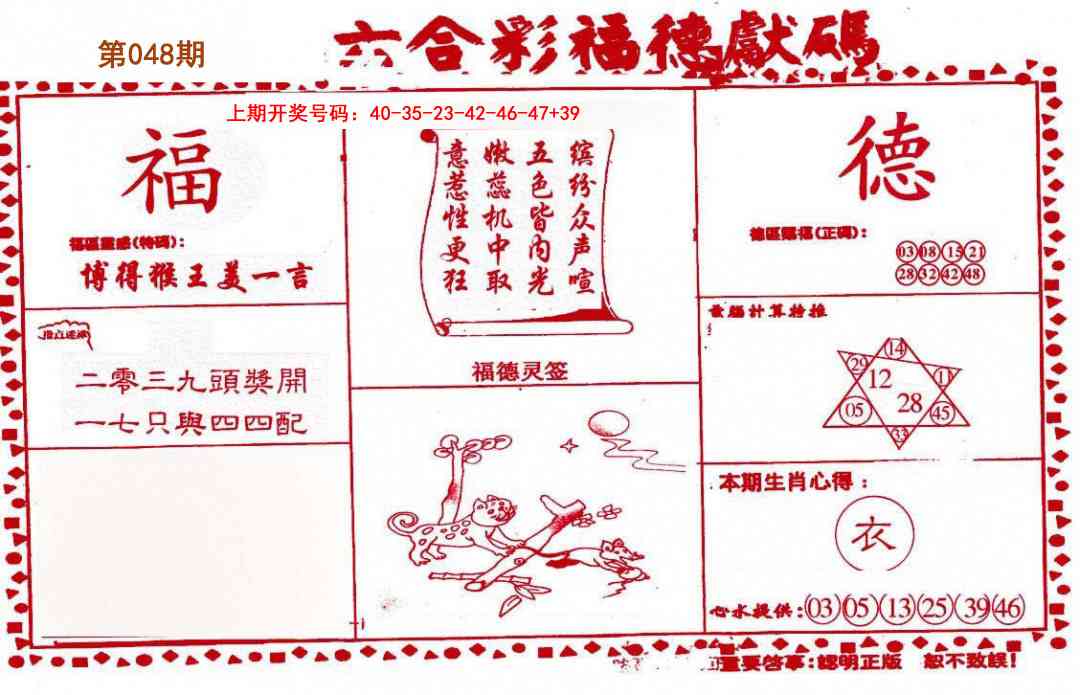 第048期
六合彩福德獻碼
上期开奖号码：40-35-23-42-46-47+39
福
福區靈感(特碼)：
博得猴王美一言
二零三九頭獎開
一七只與四四配
缤纷众声喧
五色皆内光
嫩蕊机中取
意惹性更狂
福德灵签
德
德區賜福(正碼)：
03 08 15 21
28 32 42 48
計算特推
14
29 11
12
28
05 45
33
本期生肖心得：
衣
心水提供：03 05 13 25 39 46
重要啓事：認明正版 恕不致誤！